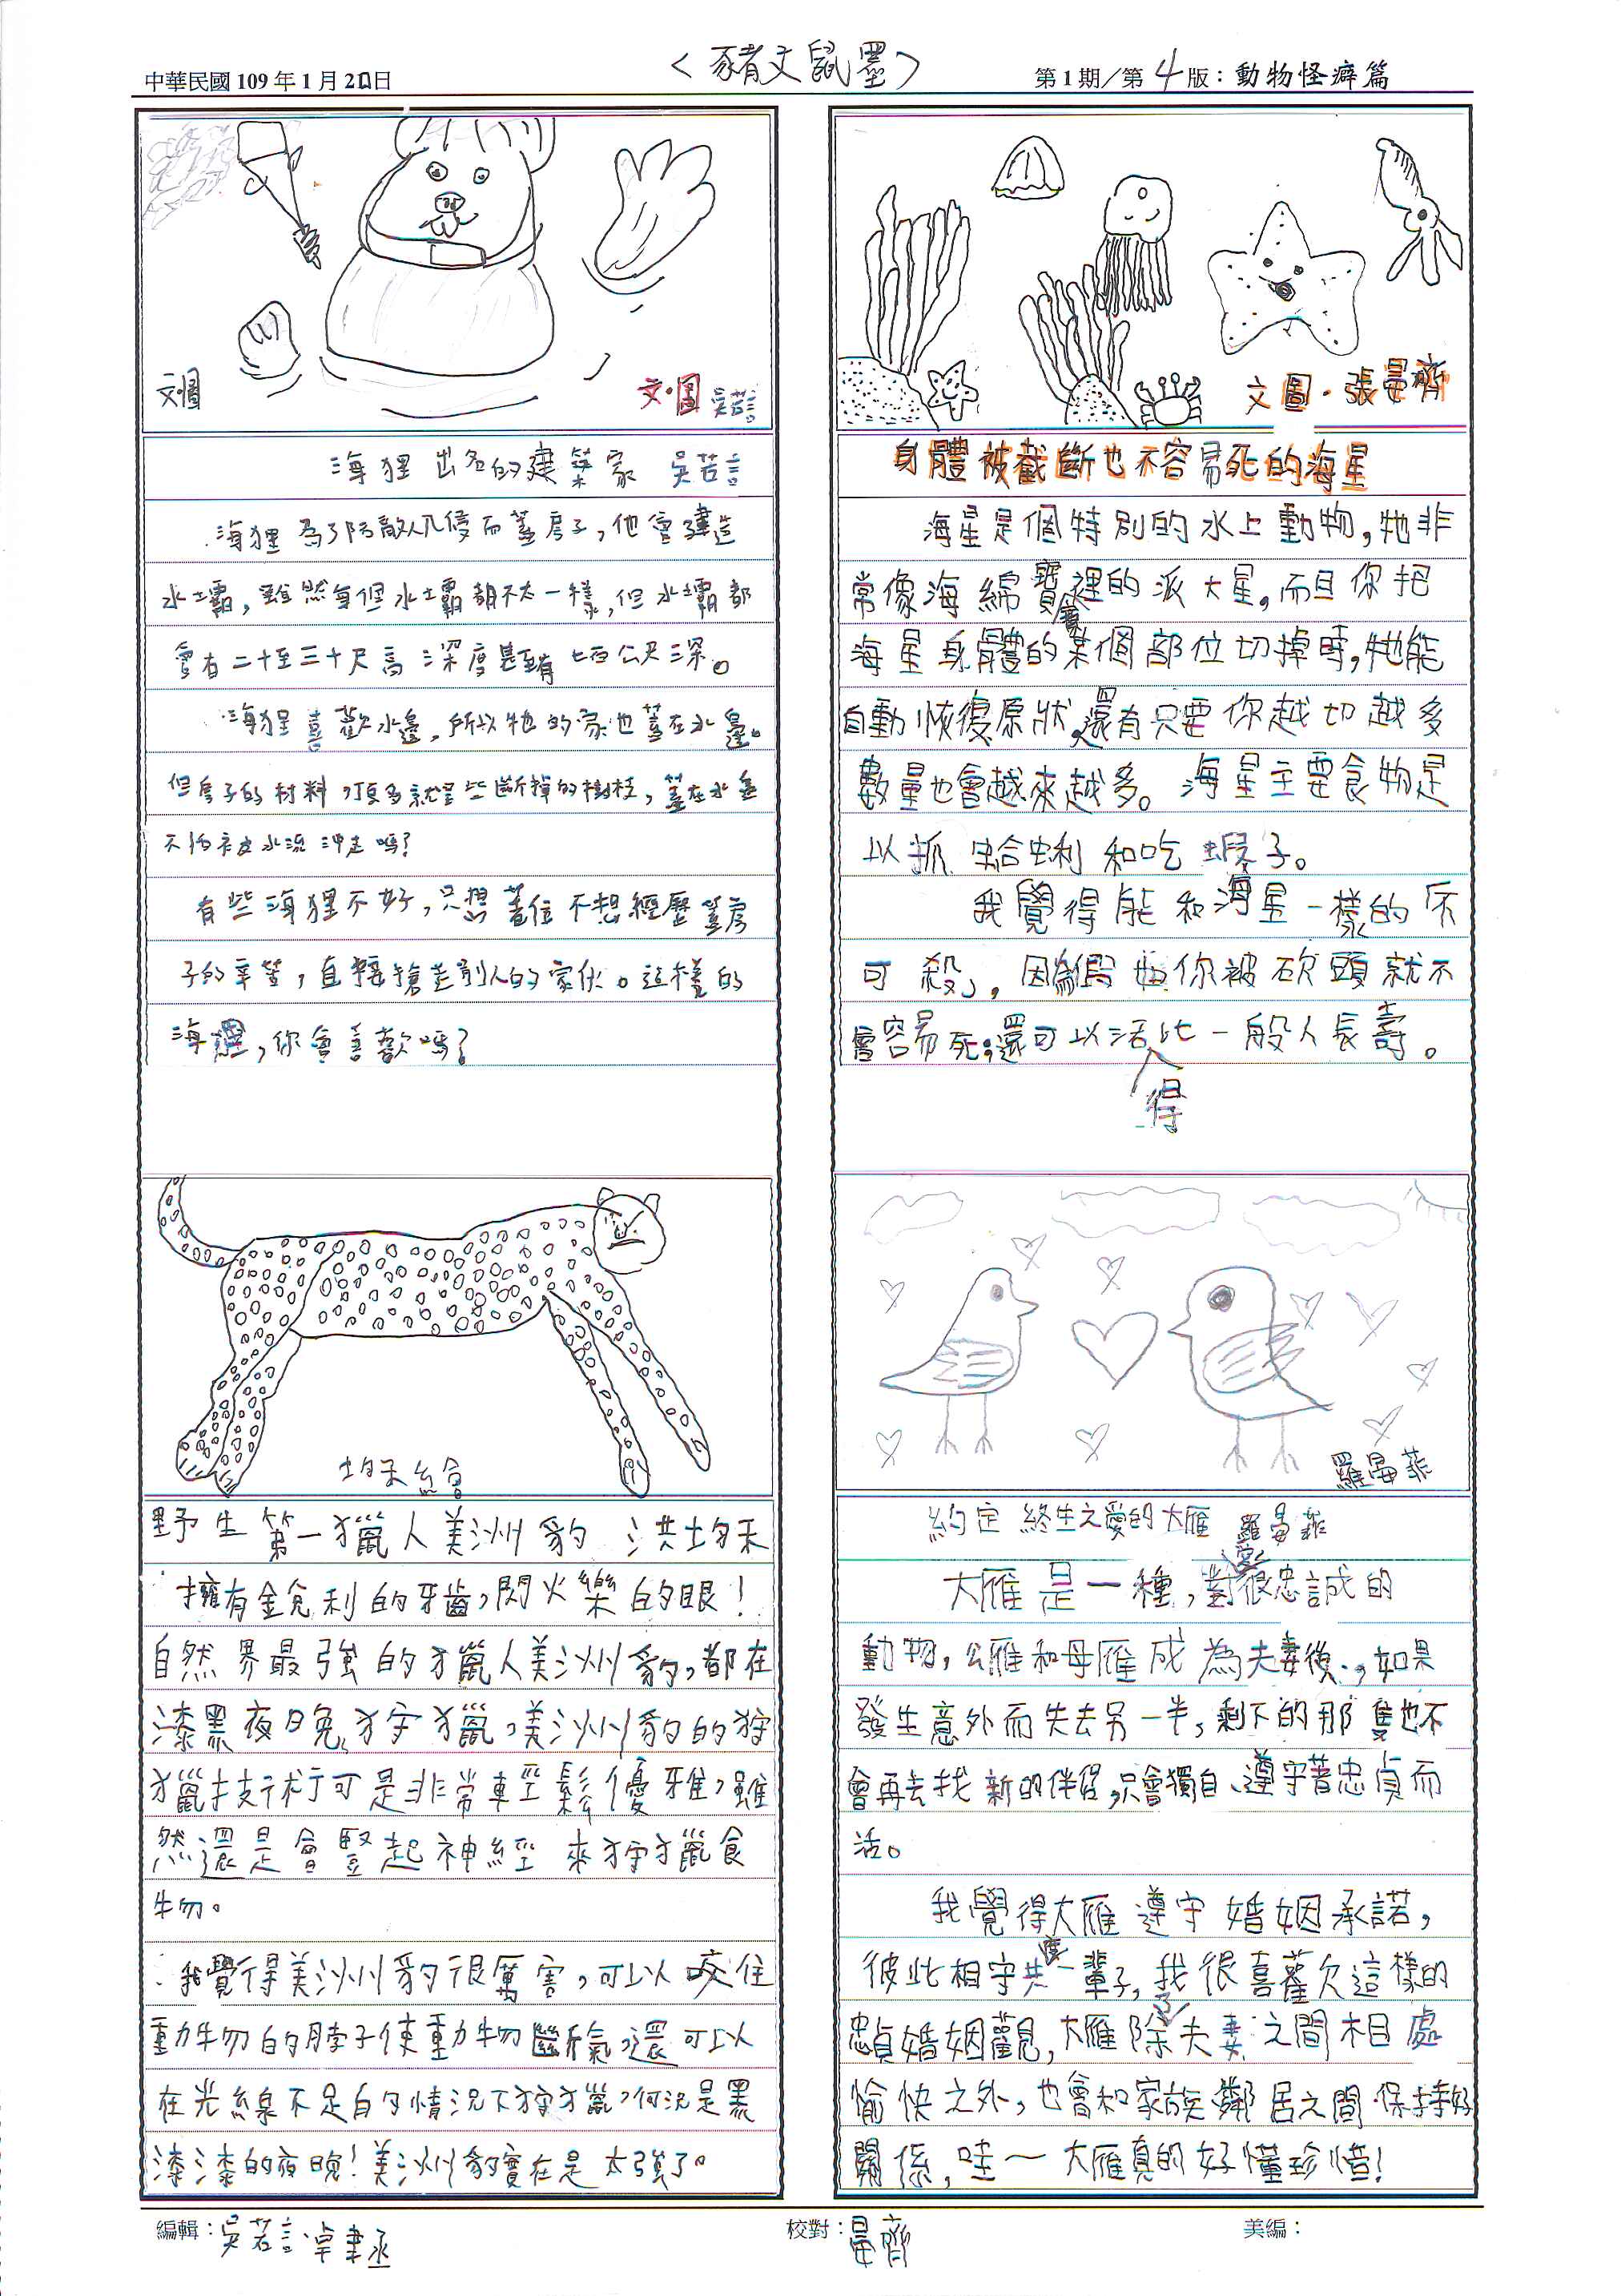 中華民國 109 年 1 月 20 日
<豬文鼠墨>
第 1 期/第 4 版：動物怪癖篇
文圖
文·圖 吳若言
海狸 出名的建築家 吳若言
海狸為了防敵人入侵而蓋房子，他會建造
水壩，雖然每個水壩都不太一樣，但水壩都
會有二十至三十尺高 深度甚至有七百公尺深。
海狸喜歡水邊，所以牠的家也蓋在水邊。
但房子的材料，頂多就是些斷掉的樹枝，蓋在水邊
不怕被水流沖走嗎？
有些海狸不好，只想蓋住不想經歷蓋房
子的辛苦，直接搶走別人的家伙。這樣的
海狸，你會喜歡嗎？
均禾繪
野生第一獵人美洲豹 洪均禾
擁有銳利的牙齒，閃火樂的眼！
自然界最強的獵人美洲豹，都在
漆黑夜晚狩獵，美洲豹的狩
獵技術可是非常輕鬆優雅，雖
然還是會豎起神經來狩獵食
物。
我覺得美洲豹很厲害，可以咬住
動物的脖子使動物斷氣，還可以
在光線不足的情況下狩獵，何況是黑
漆漆的夜晚！美洲豹實在是太強了。
文圖·張晏齊
身體被截斷也不容易死的海星
海星是個特別的水上動物，牠非
常像海綿寶寶裡的派大星，而且你把
海星身體的某個部位切掉時，牠能
自動恢復原狀，還有只要你越切越多
數量也會越來越多。海星主要食物是
以抓蛤蜊和吃蝦子。
我覺得能和海星一樣的「不
可殺」，因為假如你被砍頭就不
會容易死；還可以活得比一般人長壽。
羅晏菲
約定終生之愛的大雁 羅晏菲
大雁是一種，對愛很忠誠的
動物，公雁和母雁成為夫妻後，如果
發生意外而失去另一半，剩下的那隻也不
會再去找新的伴侶，只會獨自、遵守著忠貞而
活。
我覺得大雁遵守婚姻承諾，
彼此相守共度一輩子，我很喜歡這樣的
忠貞婚姻觀，大雁除了夫妻之間相處
愉快之外，也會和家族鄰居之間保持好
關係，哇~大雁真的好懂珍惜！
編輯：吳若言 卓聿丞
校對：晏齊
美編：